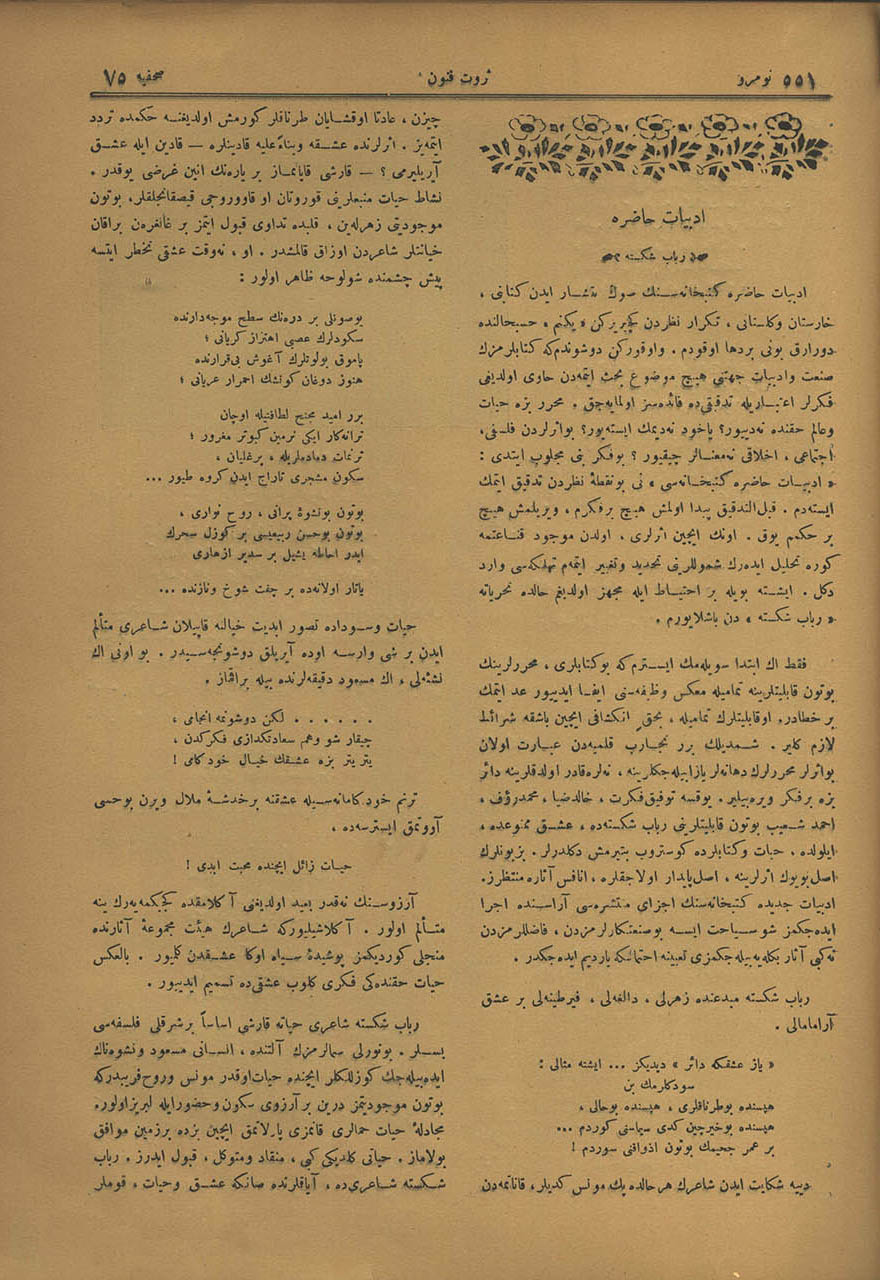 نومرو ٥٥١
ثروت فنون
صحفیه ٧٥
ادبیات حاضره
رباب شکسته
ادبیات حاضره کتبخانه‌سـنك صوك منتشار ایدن کتابنی ،
خارستان وکلستانی ، تکرار نظردن کچیرکن « یکنم » حسبحالنده
دورارق بونی بردها اوقودم . واوقورکن دوشوندم‌که کتابلرمزك
صنعت وادبیات جهتنی هیچ موضوع بحث ایتمه‌دن حاوی اولدیغی
فکرلر اعتباریله تدقیقی‌ده فائده‌سز اولمایه‌جق . محرر بزه حیات
وعالم حقنده نه‌دییور؟ یاخود نه‌دیمك ایسته‌یور؟ بواثرلردن فلسفی،
اجتماعی ، اخلاقی نه‌معنالر چیقیور ؟ بوفکر بنی مجلوب ایتدی :
« ادبیات حاضره کتبخانه‌سی » نی بونقطهٔ نظردن تدقیق ایتمك
ایسته‌دم . قبل‌التدقیق پیدا اولمش هیچ برفکرم ، ویریلمش هیچ
بر حکمم یوق . اونك ایچین اثرلری ، اولدن موجود قناعتمه
کوره تحلیل ایده‌رك شموللرینی تحدید وتغییر ایتمه‌م تهلکه‌سی وارد
دکل . ایشته بویله بر احتیاط ایله مجهز اولدیغم حالده تحریاته
« رباب شکسته » دن باشلایورم .
فقط اك ابتدا سویله‌مك ایسترم‌که بوکتابلری ، محررلرینك
بوتون قابلیتلرینه تمامیله معکس وظیفه‌سنی ایفا ایدییور عد ایتمك
بر خطادر. اوقابلیتلرك تمامیله ، بحق انکشافی ایچین باشقه شرائط
لازم کلیر . شمدیلك برر تجارب قلمیه‌دن عبارت اولان
بواثرلر محررلرك دهانه‌لر یازابیله‌جکلرینه ، نه‌لره‌قادر اولدقلرینه دائر
بزه برفکر ویره‌بیلیر. یوقسه توفیق‌فکرت ، خالدضیا ، محمدرؤف ،
احمد شعیب بوتون قابلیتلرینی رباب شکسته‌ده ، عشق ممنوعده ،
ایلولده ، حیات وکتابلرده کوستروب بتیرمش دکلدرلر. بزبونلرك
اصل بویوك اثرلرینه ، اصل‌پایدار اولاجقلره ، انفس آثاره منتظرز.
ادبیات جدیده کتبخانه‌سنك اجزای منتشره‌سی آراسنده اجرا
ایده‌جکمز شو سیاحت ایسه بوصنعتکارلرمزدن ، فاضللرمزدن
نه‌کبی آثار بکله‌یه‌بیله‌جکمزی تعیینه احتمالکه یاردیم ایده‌جکدر .
رباب شکسته مبدعنده زهرلی ، دالغه‌لی ، فیرطینه‌لی بر عشق
آرامامالی .
« یاز عشقکه دائر » دیدیکز ... ایشته مثالی :
سودکلرمك بن
هپسنده بوطرناقلری ، هپسنده بوحالی ،
هپسنده بوخیرچین کدی سیماسنی کوردم ...
بر عمر جحیمك بوتون اذواقنی سوردم !
دییه شکایت ایدن شاعرك هرحالده پك مونس کدیلر، قاناتمه‌دن
چیزن ، عادتا اوقشایان طرناقلر کورمش اولدیغنه حکمده تردد
ایتمه‌یز . اثرلرنده عشقه وبناءً‌علیه قادینلره — قادین ایله عشق
آیریلیرمی ؟ — قارشی قاپانماز بر یاره‌نك انین غرضی یوقدر .
نشاط حیات منبعلرینی قوروتان او قاووروجی قیصقانجلقلر، بوتون
موجودیتی زهرله‌ین ، قلبده تداوی قبول ایتمز بر غانغره‌ن براقان
خیانتلر شاعردن اوزاق قالمشدر. او ، نه‌وقت عشقی تخطر ایتسه
پیش چشمنده شولوحه ظاهر اولور :
بوصونلی بر دره‌نك سطح موجه‌دارنده
سکودلرك عصبی اهتزاز کریانی ؛
پاموق بولوتلرك آغوش بی‌قرارنده
هنوز دوغان کونشك احمرار عریانی ؛
برر امید مجنح لطافتیله اوچان
ترانه‌کار ایکی نرمین کبوتر مغرور ؛
ترنمات دمادملریله ، برغلیان ،
سکون مشجری تاراج ایدن کروه طیور ...
بوتون بونشوهٔ پرانی ، روح نواری ،
بوتون بوحسن ربیعیسی بر کوزل سحرك
ایدر احاطه یشیل بر سدیر ازهاری
یاتار اولانه‌ده بر چفت شوخ ونازنده ...
حیات وسوداده تصور ابدیت خیالنه قاپیلان شاعری متألم
ایدن بر شی وارسه اوده آیریلق دوشونجه‌سیدر . بو اونی اك
نشئه‌لی ، اك مسعود دقیقه‌لرنده بیله براقماز .
. . . . . . لکن دوشونمه انجامی ،
چیقار شو وهم سعادتکدازی فکرکدن ،
یتر یتر بزه عشقك خیال خودکامی !
ترنم خودکامانه‌سیله عشقنه برخدشهٔ ملال ویرن بوحسی
آووتمق ایسترسه‌ده ،
حیات زائل ایچنده محبت ابدی !
آرزوسنك نه‌قدر بعید اولدیغنی آکلامقده کجیکمه‌یه‌رك ینه
متألم اولور . آکلاشیلیورکه شاعرك هیئت مجموعهٔ آثارنده
منجلی کوردیکمز پوشیدهٔ سیاه اوکا عشقدن کلیور . بالعکس
حیات حقنده‌کی فکری کلوب عشقی‌ده تسمیم ایدییور .
رباب شکسته شاعری حیاته قارشی اساساً برشرقلی فلسفه‌سی
بسلر . بوتورلی سمالرمزك آلتنده ، انسانی مسعود ونشوه‌ناك
ایده‌بیله‌جك کوزللکلر ایچنده حیات‌اوقدر مونس وروح‌فریبدرکه
بوتون موجودیتمز درین برآرزوی سکون وحضورایله لبریزاولور.
مجادلهٔ حیات حمالری قانمزی پارلاتمق ایچین بزده برزمین موافق
بولاماز. حیاتی کلدیکی کبی ، منقاد ومتوکل ، قبول ایدرز. رباب
شکسته شاعری‌ده ، آیاقلرنده صانکه عشق وحیات ، قوملر